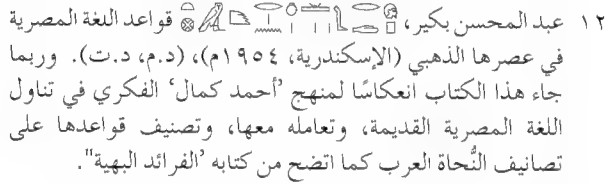 ١٢ عبد المحسن بكير، قواعد اللغة المصرية
في عصرها الذهبي (الإسكندرية، ١٩٥٤م)، (د.م، د.ت). وربما
جاء هذا الكتاب انعكاسًا لمنهج 'أحمد كمال' الفكري في تناول
اللغة المصرية القديمة، وتعامله معها، وتصنيف قواعدها على
تصانيف النُّحاة العرب كما اتضح من كتابه "الفرائد البهية".